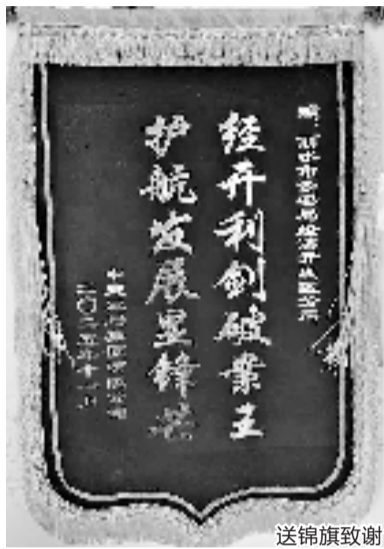 赠：丽水市公安局经济开发区分局
经开利剑破案王
护航发展显锋芒
二〇二五年十一月
送锦旗致谢